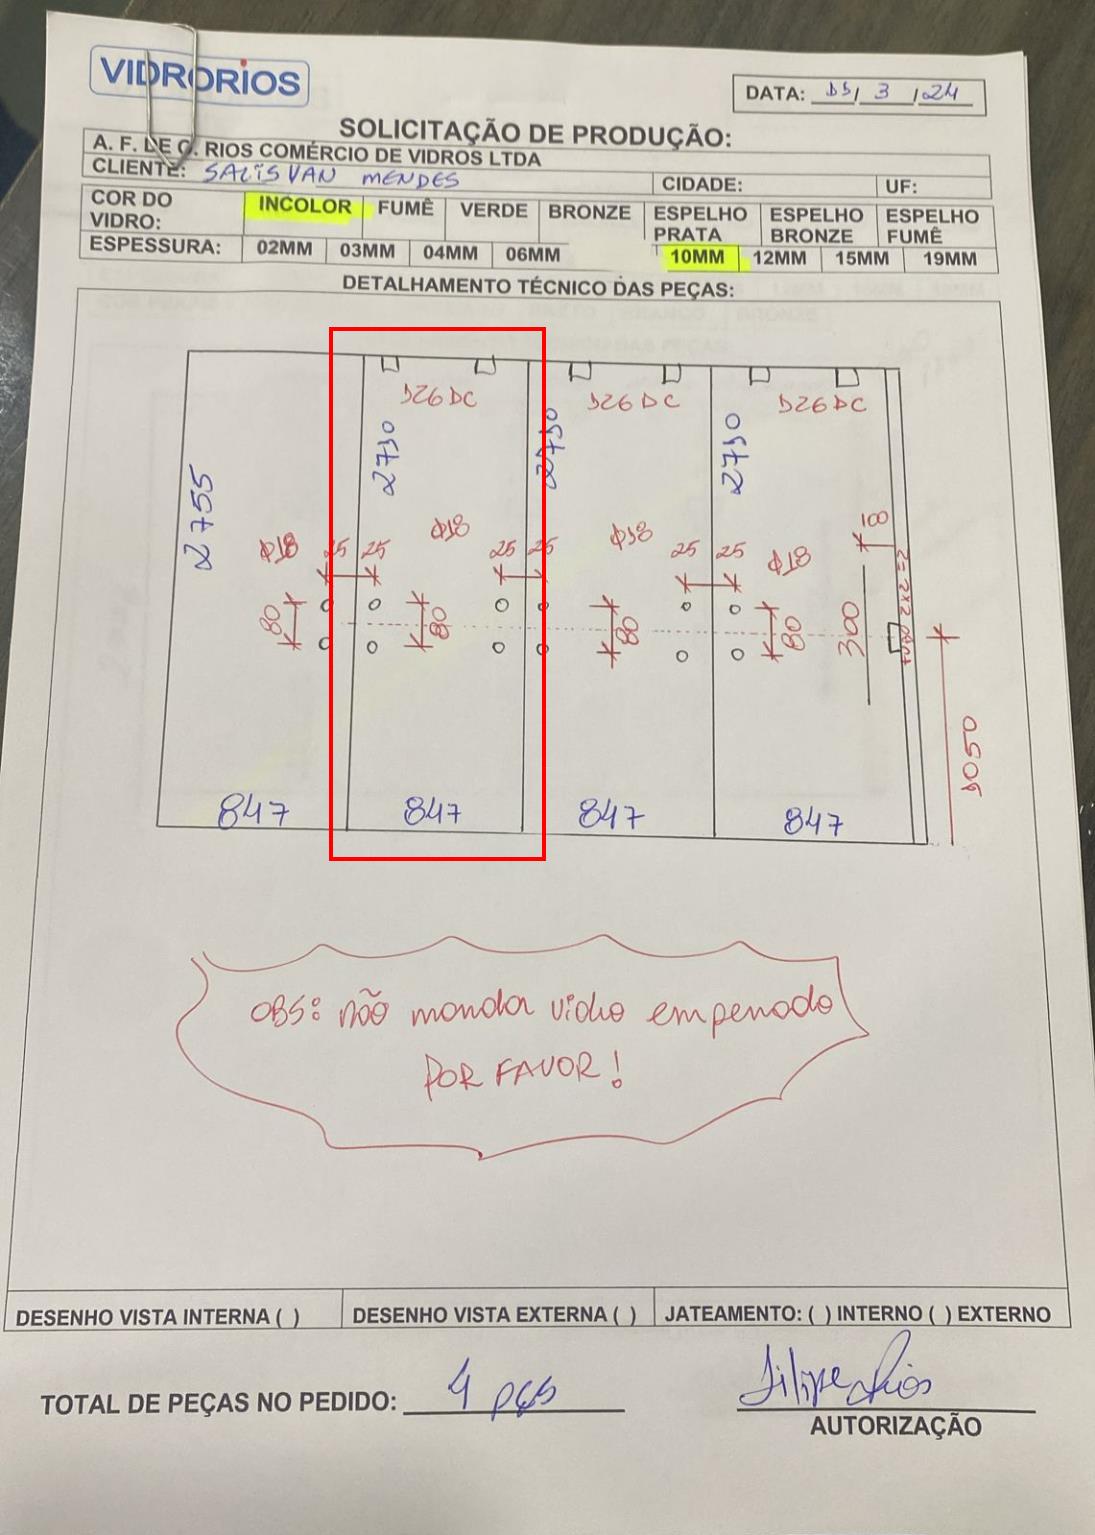 VIDRORIOS
DATA: 05/3/24
SOLICITAÇÃO DE PRODUÇÃO:
A. F. DE O. RIOS COMÉRCIO DE VIDROS LTDA
CLIENTE: SALISVAN MENDES CIDADE: UF:
COR DO VIDRO: INCOLOR FUMÊ VERDE BRONZE ESPELHO PRATA ESPELHO BRONZE ESPELHO FUMÊ
ESPESSURA: 02MM 03MM 04MM 06MM 10MM 12MM 15MM 19MM
DETALHAMENTO TÉCNICO DAS PEÇAS:
126 DC 126 DC 126 DC
2755 2730 2730 2730
Φ18 25 25 Φ18 25 25 Φ18 25 25 Φ18 100
80 80 80 80 300
1050
847 847 847 847
OBS: não mandar vidro empenado
POR FAVOR!
DESENHO VISTA INTERNA ( ) DESENHO VISTA EXTERNA ( ) JATEAMENTO: ( ) INTERNO ( ) EXTERNO
TOTAL DE PEÇAS NO PEDIDO: 4 pçs
Filipe Rios
AUTORIZAÇÃO